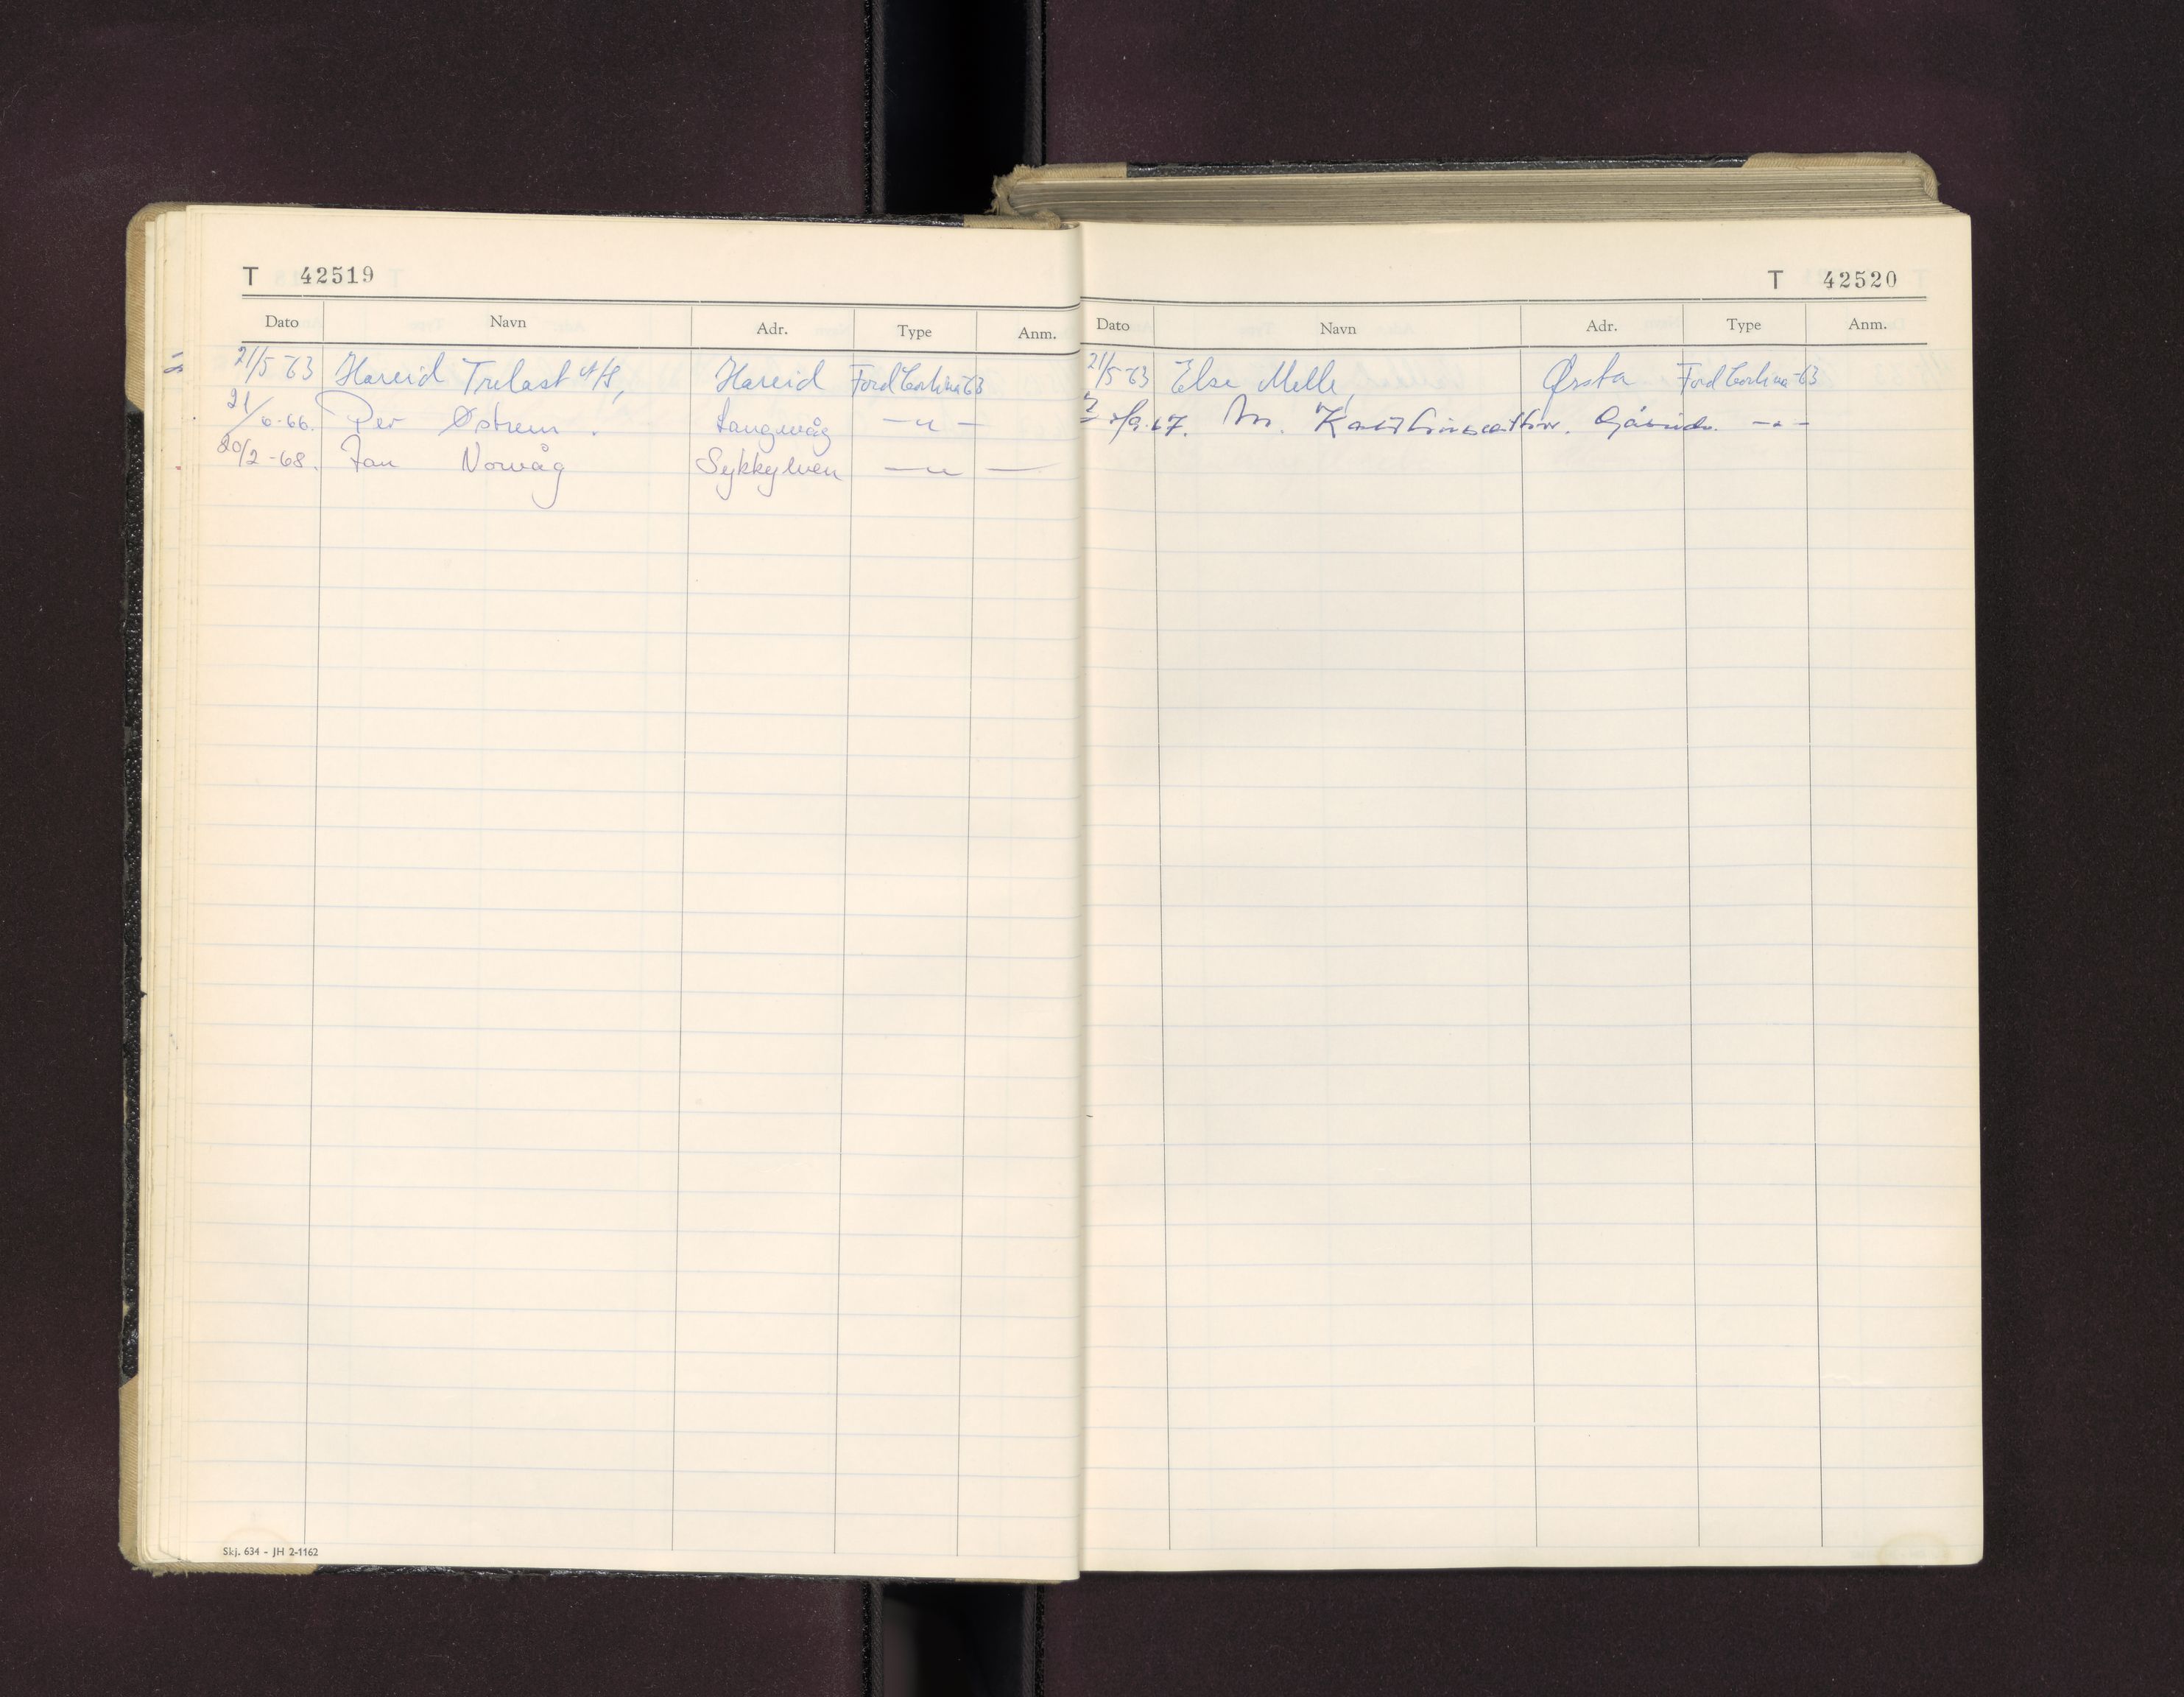 T 42519
Dato Navn Adr. Type Anm.
21/5-63 Hareid Trelast A/S, Hareid Ford Cortina-63
21/6-66. Per Østrem. Langevåg —"—
20/2-68. Jan Norvåg Sykkylven —"—
Skj. 634 - JH 2-1162
T 42520
Dato Navn Adr. Type Anm.
21/5-63 Else Melle, Ørsta Ford Cortina-63
67. —"—